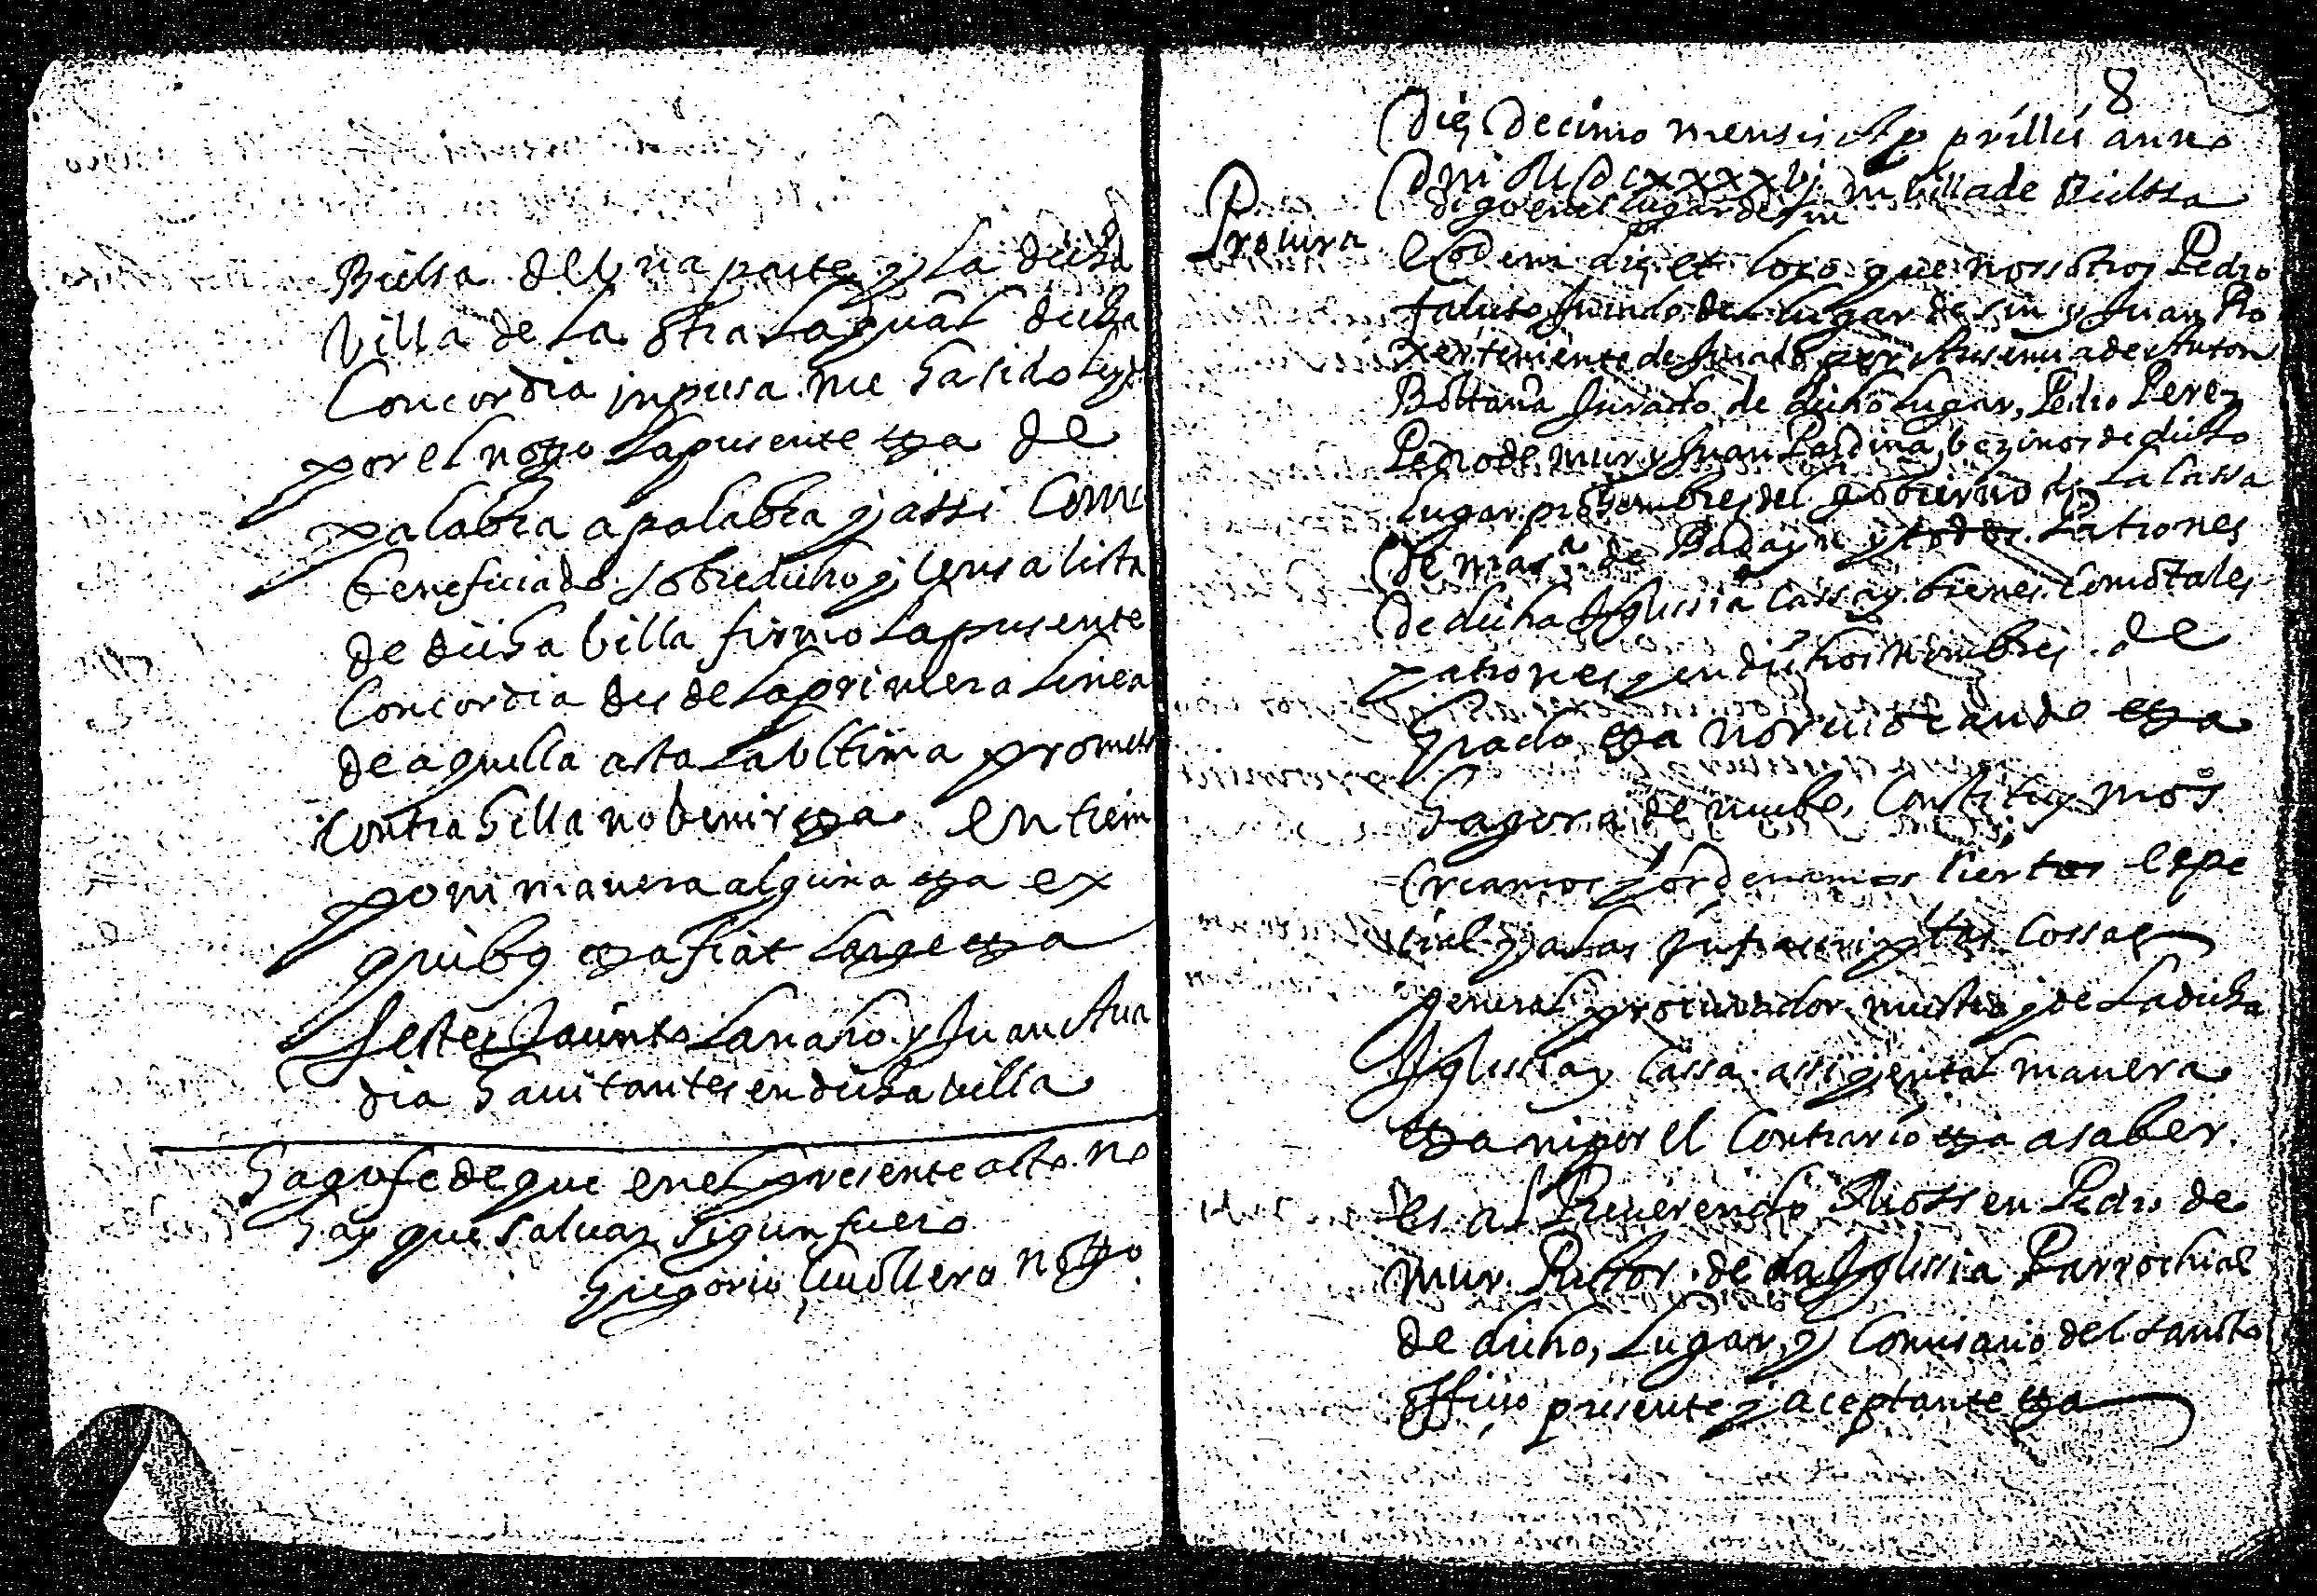 Bielsa de la una parte y la dicha
billa de la otra la qual dicha
Concordia inpresa me ha sido leyda
por el nott.º la presente etta de
palabra a palabra y assi como
beneficiado sobredicho y censalista
de dicha billa firmo la presente
Concordia des de la primera linea
de aquella asta la ultima promett
contra hella no benir etta en tiem
po ni manera alguna etta ex
quibus etta fiat large etta
Testes Jacinto Lanao y Juan
dia havitantes en dicha villa
Hago fe de que en el presente acto no
hay que salvar sigun fuero
Gregorio nott.º
8
Die decimo mensis Apprillis anno
Dni MDCxxxxvj in billa de Bielssa
digo en el lugar de sin
Procura
Eodem die et loco que nossotros Pedro
Jurado del lugar de Sin y Juan Ro
per teniente de Jurado por Ausencia de Anton
Boltaña Jurado de dicho lugar, Pedro Perez
Pedro de mur y Juan Pardina bezinos de dicho
lugar prohombres del gobierno de La Cassa
de de Badayn y todos Patrones
de dicha Iglesia Cassa y bienes Como tales
patrones y en dichos nombres de
grado etta no rebocando etta
hagora de nuebo Constituymos
Creamos y ordenamos Cierto espe
cial y a las infrascriptas Cossas
general procurador nuestro y de La dicha
Iglesia y Cassa assi y en tal manera
etta ni por el Contrario etta a saber
es al Reverendo Mossen Pedro de
mur Rector de la Iglesia Parrochial
de dicho Lugar y Comisario del sancto
officio presente y aceptante etta